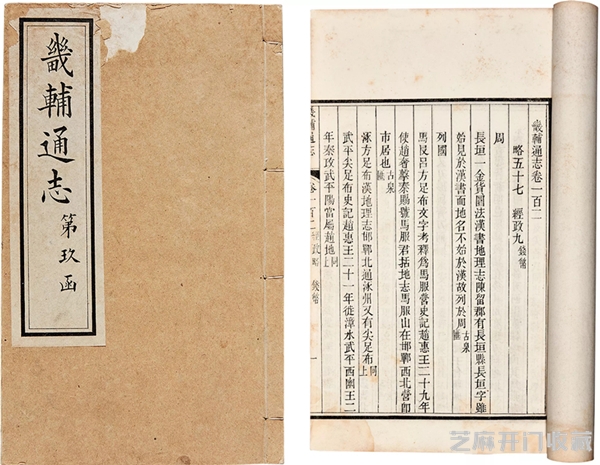 畿輔通志
第玖函
畿輔通志卷一百二
略五十七　經政九　錢幣
周
長垣一金貨圜法漢書地理志陳留郡有長垣縣長垣字雖
始見於漢書而地名不始於漢故列於周古泉匯
列國
馬反呂方足布文字考釋為馬服營史記趙惠王二十九年
使趙奢擊秦賜號馬服君括地志馬服山在邯鄲西北營卽
市居也古泉匯
涿方足布漢地理志邯鄲北通涿州又有尖足布同上
武平尖足布史記趙惠王二十一年徙漳水武平西惠王二
年秦攻武平陽當屬趙地同上
畿輔通志
卷一百二
經政略
錢幣
一
芝麻开门收藏